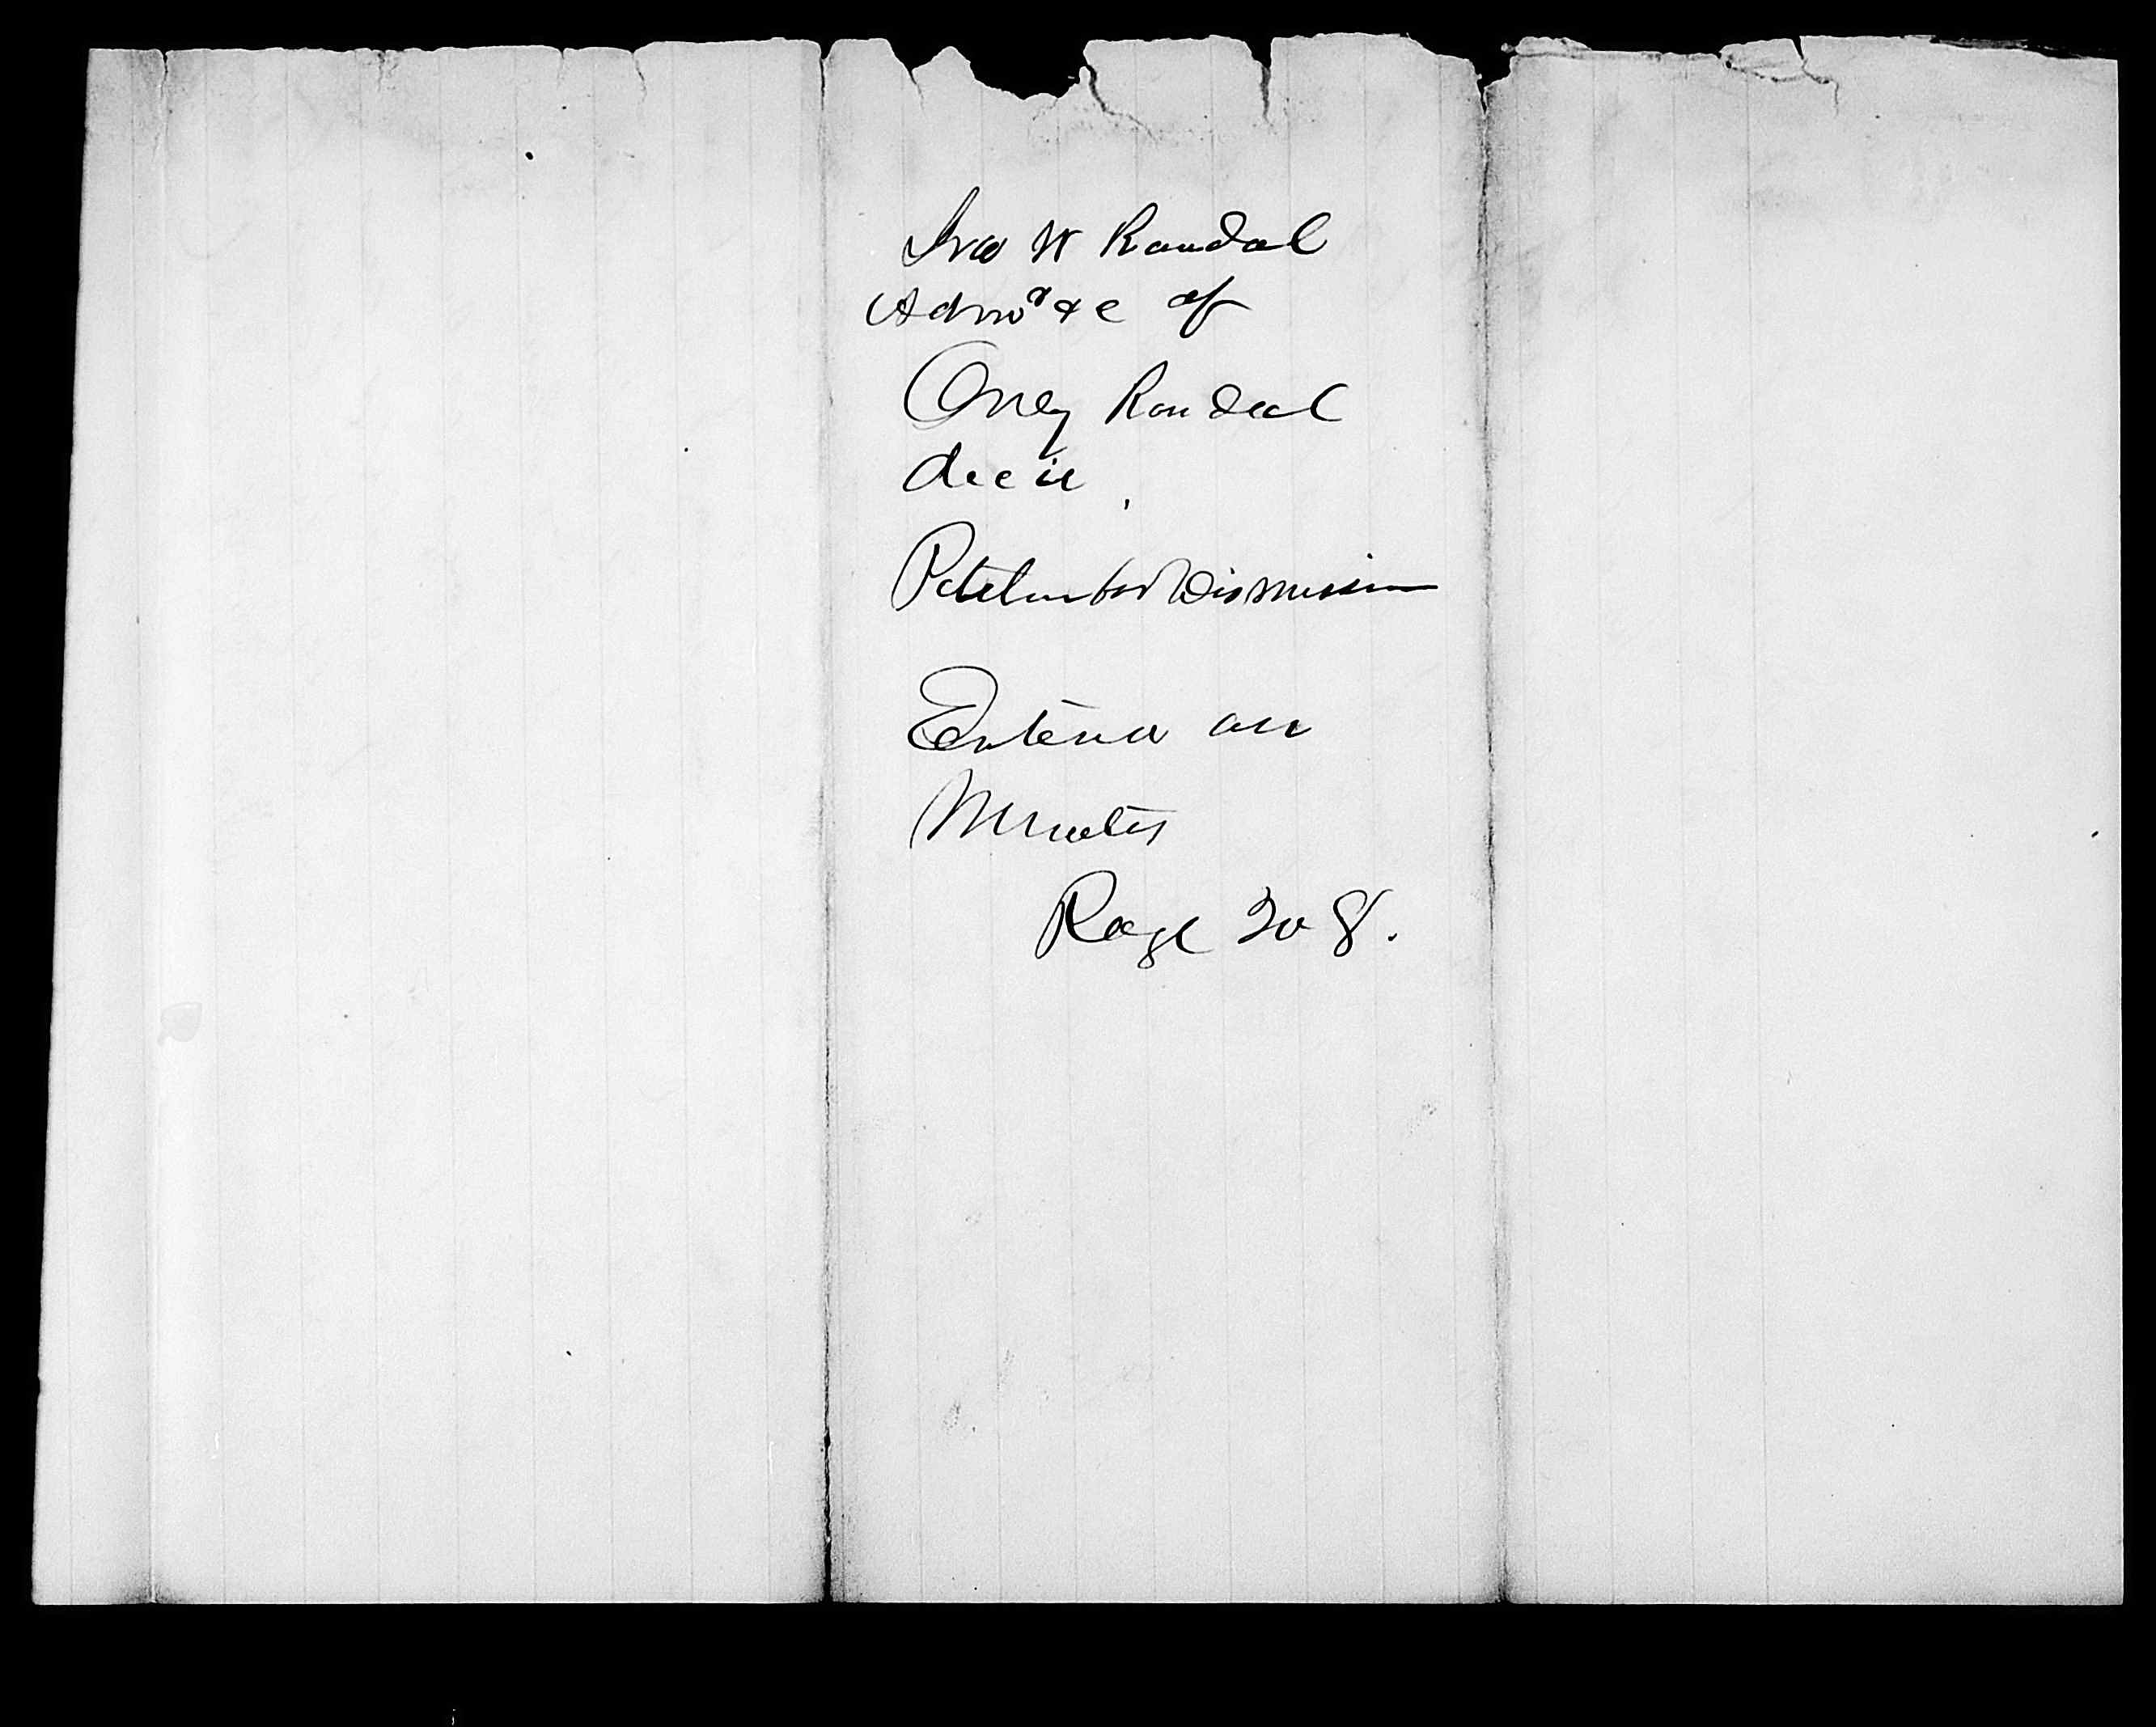 Jno W Randal
Admr &c of
Oney Randal
decd
Petition for Dismission
Entered on
Minutes
Page 208.